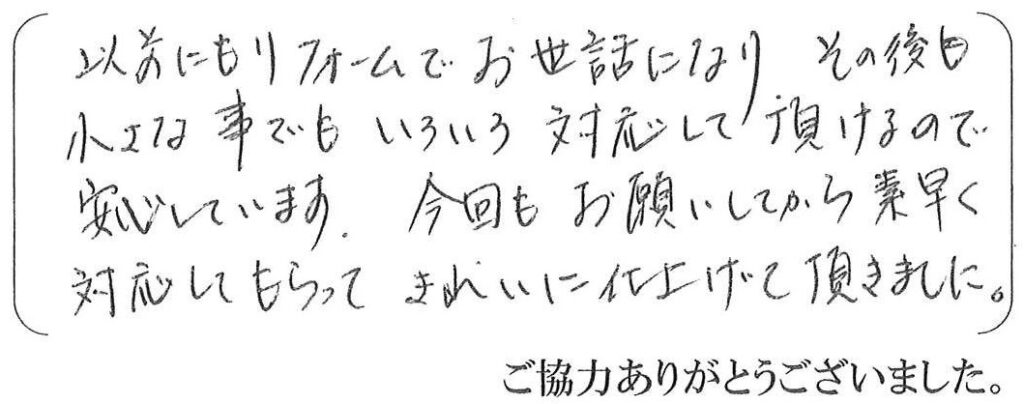 以前にもリフォームでお世話になり その後も
小さな事でも いろいろ 対応して頂けるので
安心しています. 今回も お願いしてから素早く
対応してもらって きれいに仕上げて頂きました。
ご協力ありがとうございました。